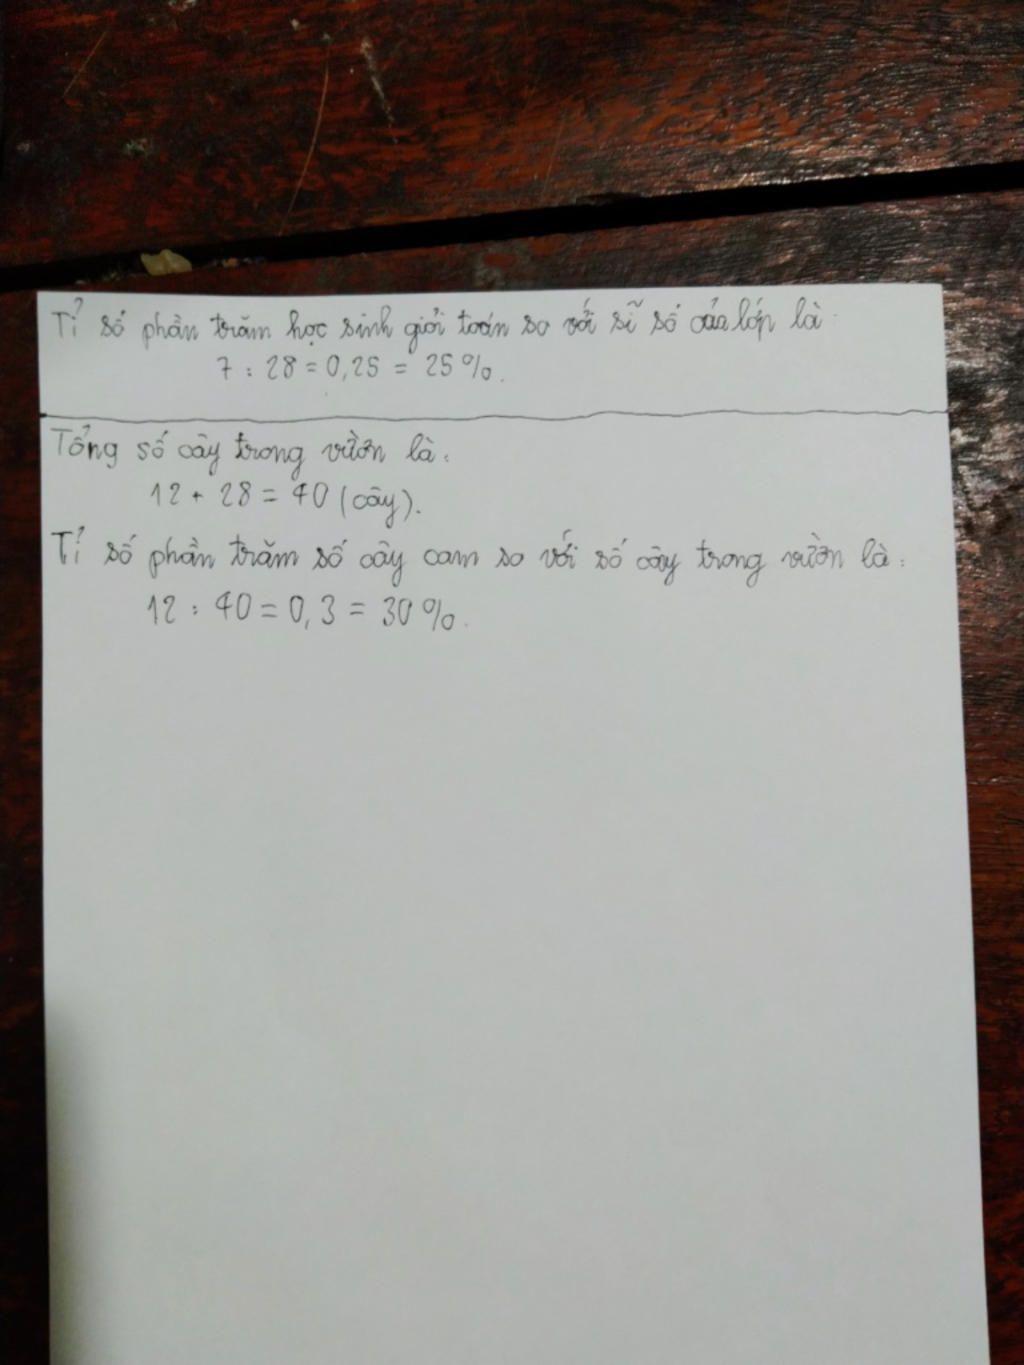 Tỉ số phần trăm học sinh giỏi toán so với sĩ số của lớp là
7 : 28 = 0,25 = 25%.
Tổng số cây trong vườn là:
12 + 28 = 40 (cây).
Tỉ số phần trăm số cây cam so với số cây trong vườn là:
12 : 40 = 0,3 = 30%.